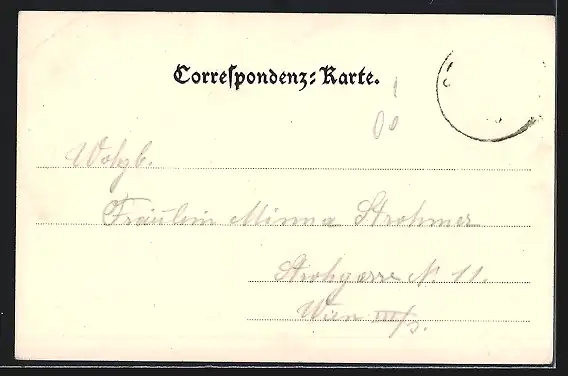 Correspondenz-Karte.
Wohlg.
Fräulein Minna Strohmer
Strohgasse N 11.
Wien III/3.